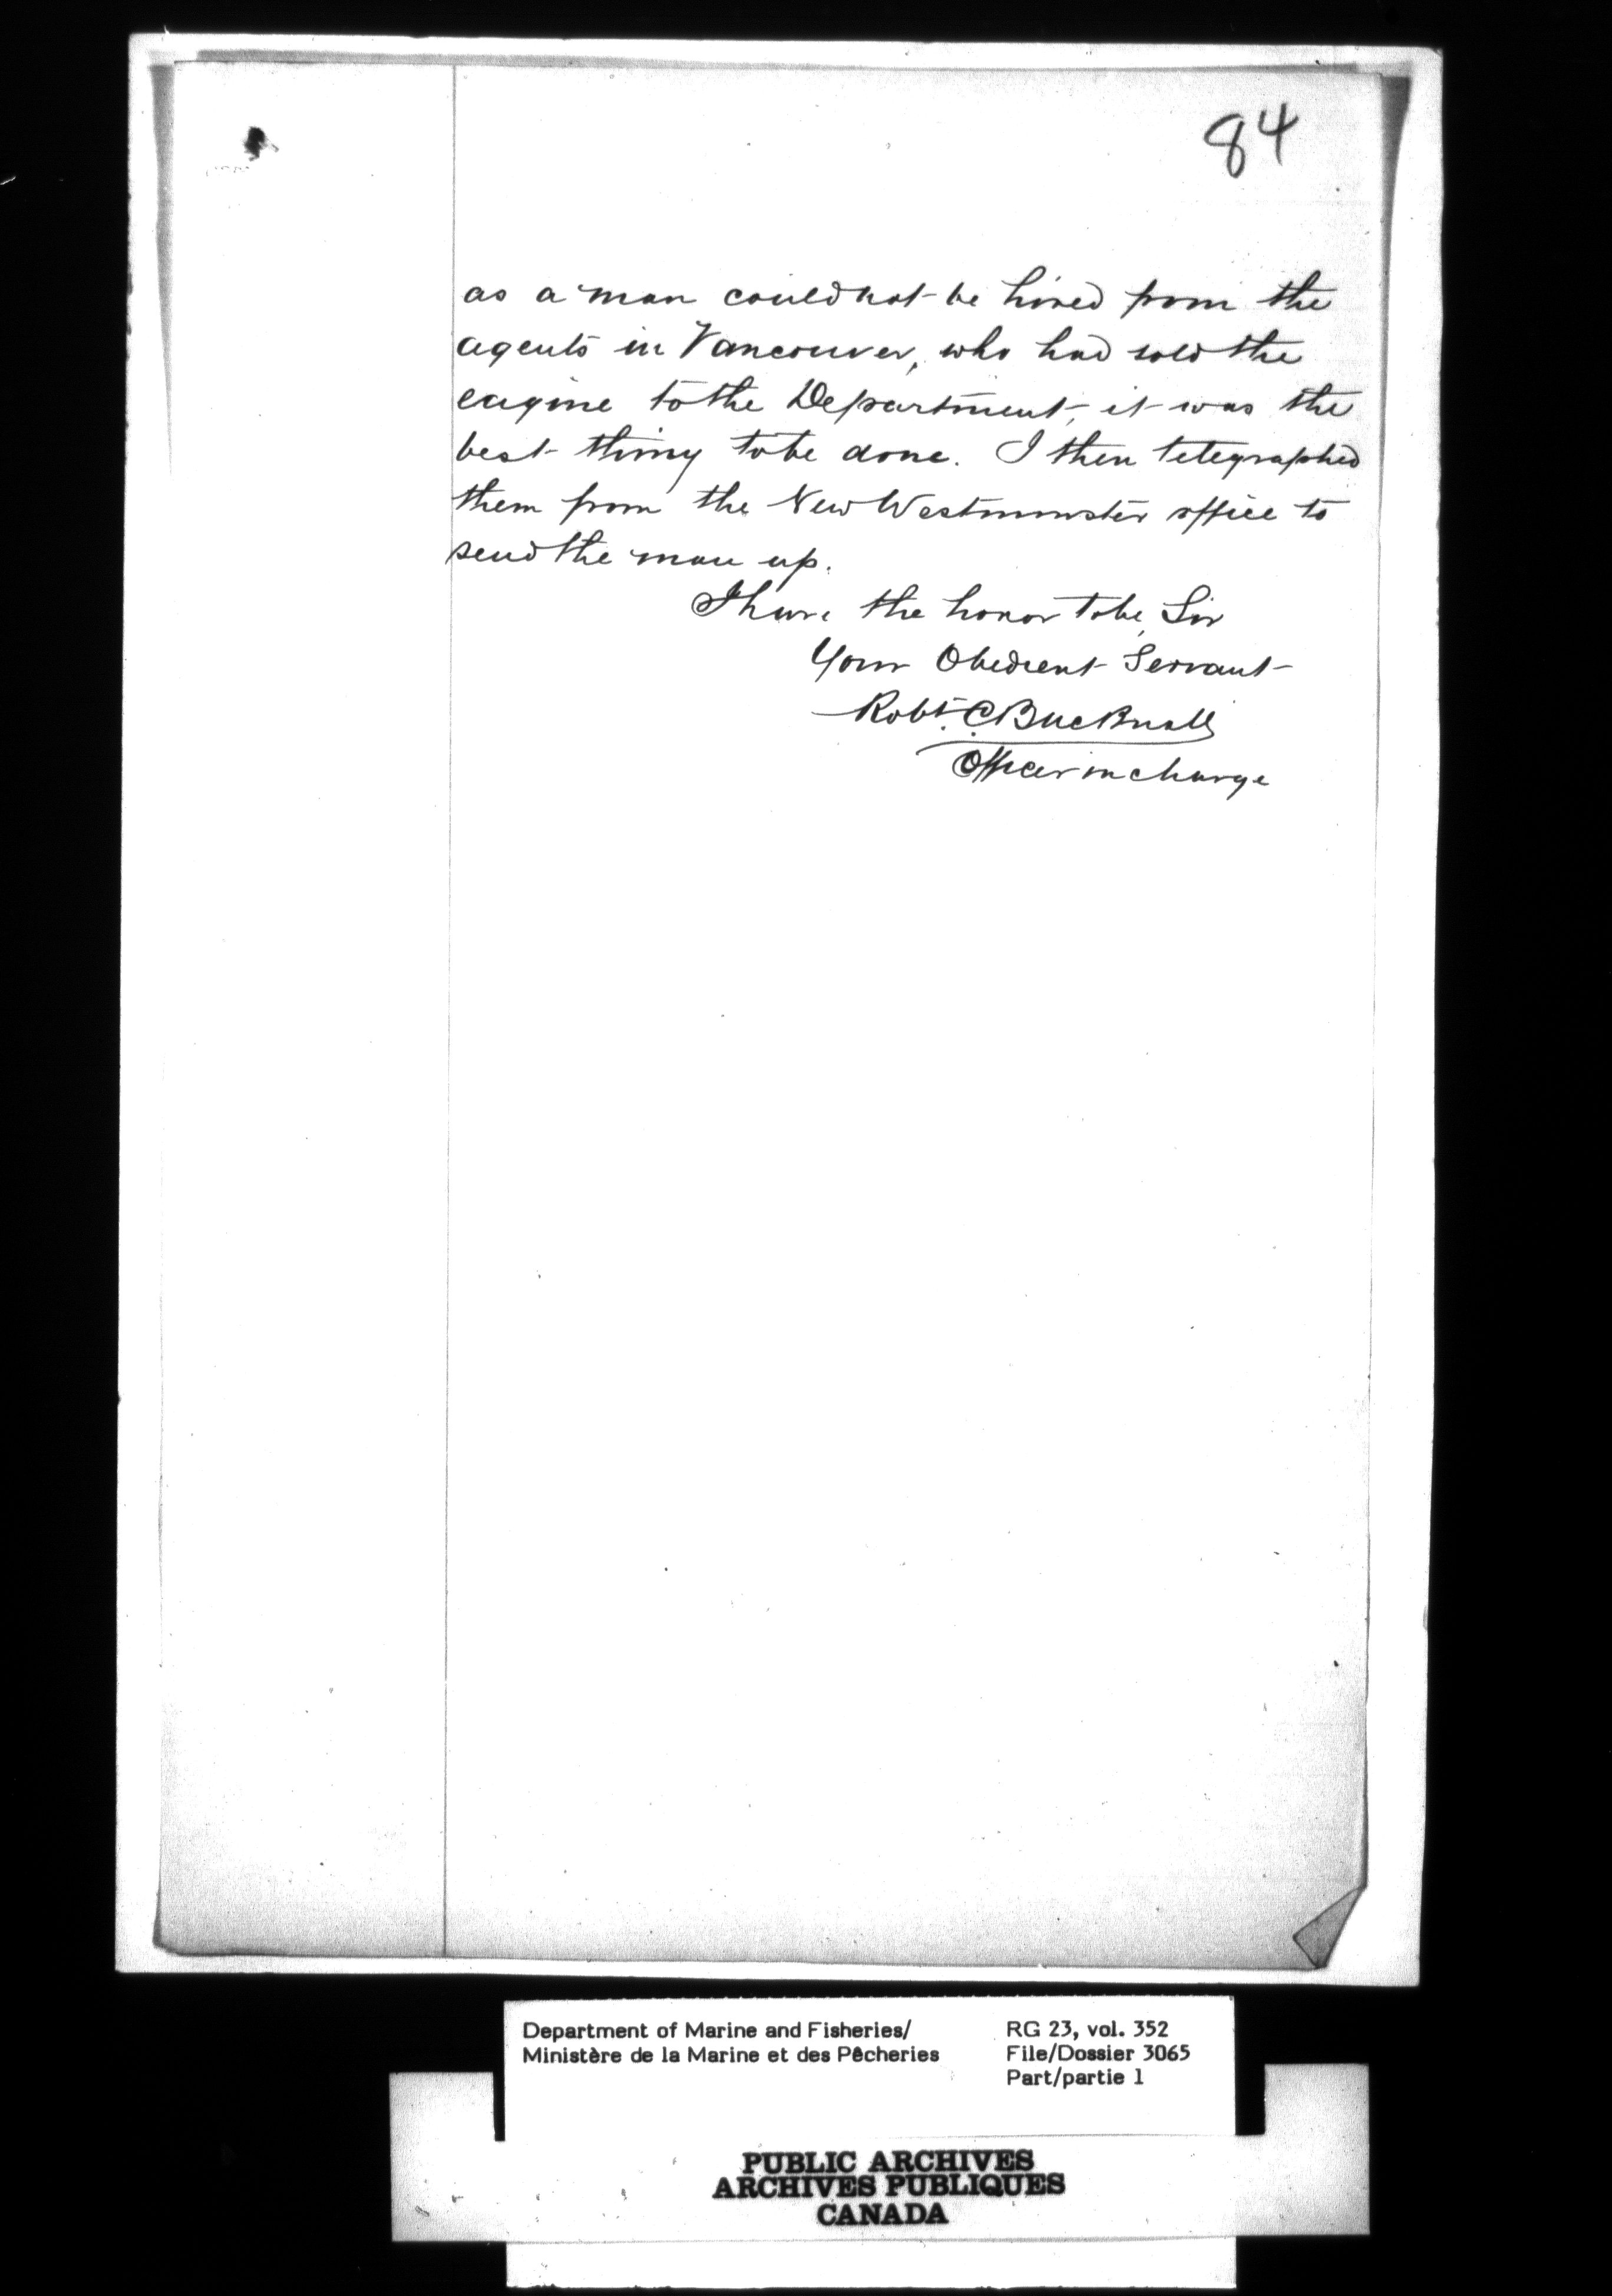 84
as a man could not be hired from the
agents in Vancouver, who had sold the
engine to the Department, it was the
best thing to be done. I then telegraphed
them from the New Westminster office to
send the man up.
I have the honor to be, Sir
Your Obedient Servant
Robt. C. Bucknall
Officer in charge
Department of Marine and Fisheries/ RG 23, vol. 352
Ministère de la Marine et des Pêcheries File/Dossier 3065
Part/partie 1
PUBLIC ARCHIVES
ARCHIVES PUBLIQUES
CANADA